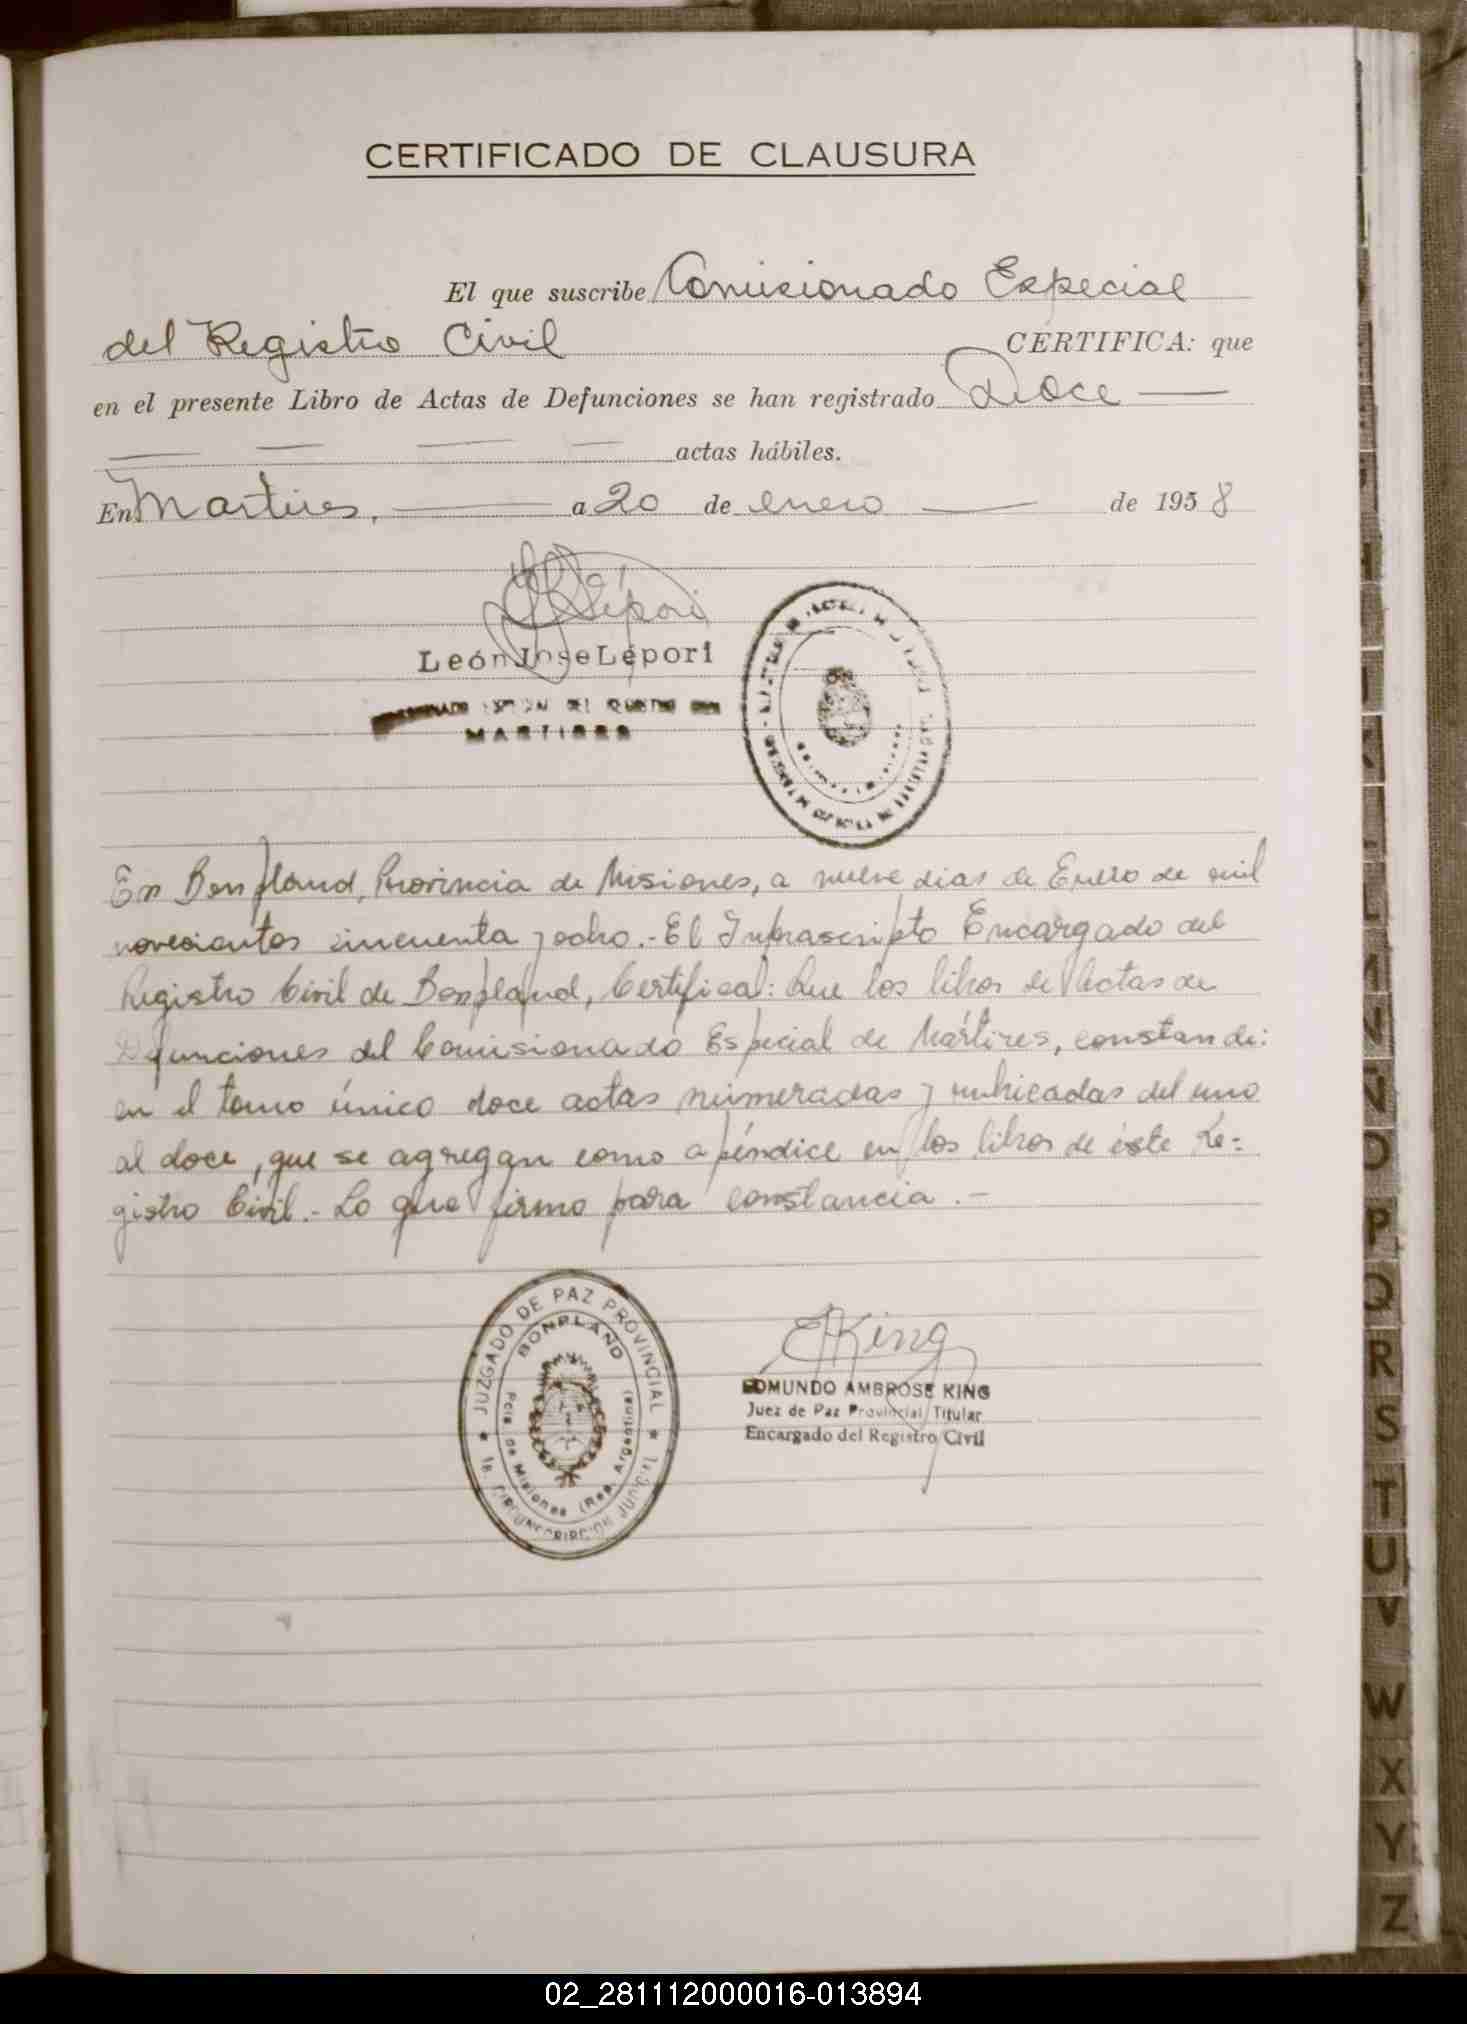 CERTIFICADO DE CLAUSURA
El que suscribe Comisionado Especial
del Registro Civil CERTIFICA: que
en el presente Libro de Actas de Defunciones se han registrado Doce
actas hábiles.
En Martires, a 20 de enero de 1958
Lépori
León Jose Lépori
ESPECIAL DEL REGISTRO CIVIL
MARTIRES
En Bonpland, Provincia de Misiones, a nueve dias de Enero de mil
novecientos cincuenta y ocho.- El Infrascripto Encargado del
Registro Civil de Bonpland, Certifica: Que los libros de Actas de
Defunciones del Comisionado Especial de Mártires, constan de:
en el tomo único doce actas numeradas y rubricadas del uno
al doce, que se agregan como apéndice en los libros de éste Re=
gistro Civil.- Lo que firmo para constancia.-
JUZGADO DE PAZ PROVINCIAL
BONPLAND
Pcia. de Misiones (Rep. Argentina)
1a. CIRCUNSCRIPCION JUDICIAL
EAKing
EDMUNDO AMBROSE KING
Juez de Paz Provincial Titular
Encargado del Registro Civil
L
M
N
O
P
Q
R
S
T
U
V
W
X
Y
Z
02_281112000016-013894